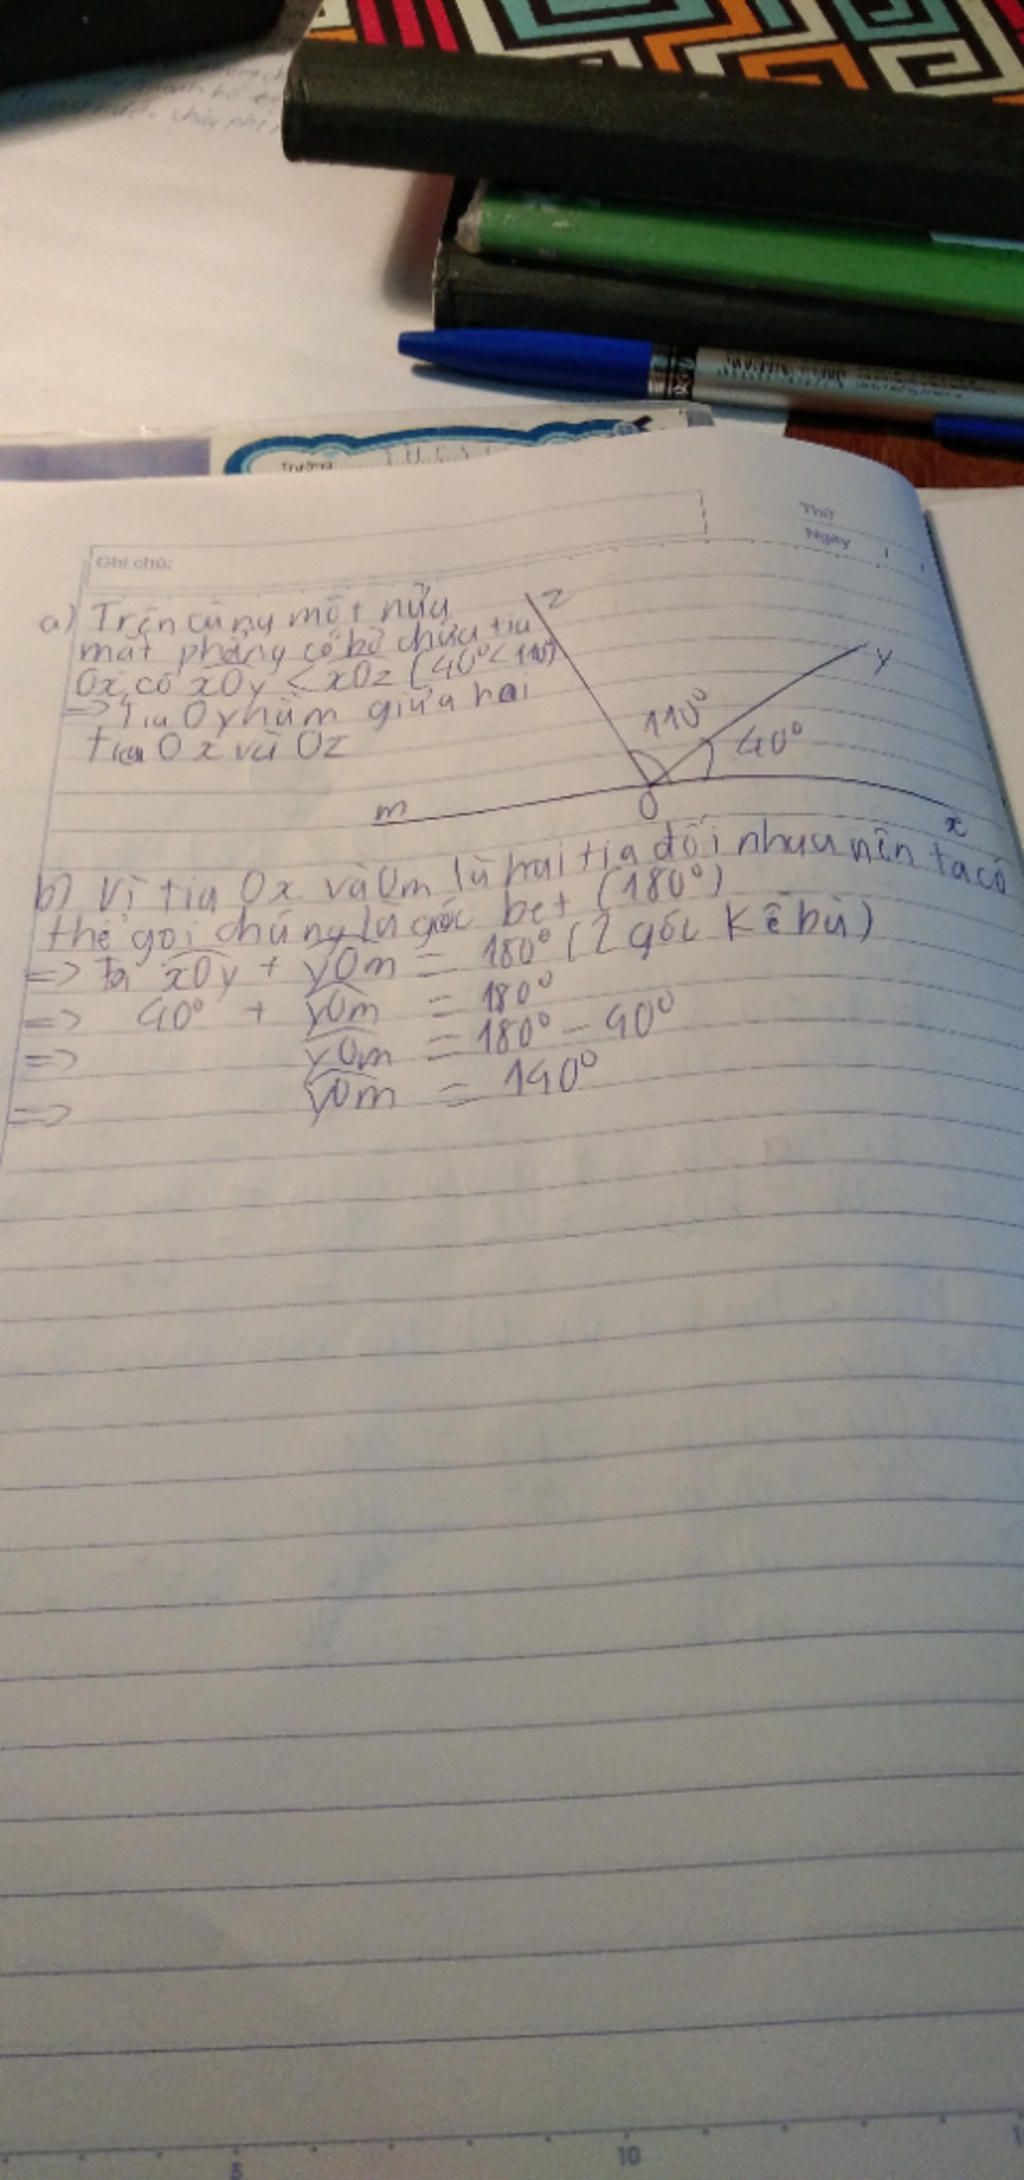 Trường
THCS
Thứ
Ngày
Ghi chú:
a) Trên cùng một nửa
mặt phẳng có bờ chứa tia
Ox, có xOy < xOz (40° < 110°)
=> Tia Oy nằm giữa hai
tia Ox và Oz
z
y
110°
40°
m
O
x
b) Vì tia Ox và Om là hai tia đối nhau nên ta có
thể gọi chúng là góc bẹt (180°)
=> xOy + yOm = 180° (2 góc kề bù)
=> 40° + yOm = 180°
=> yOm = 180° - 40°
=> yOm = 140°
5
10